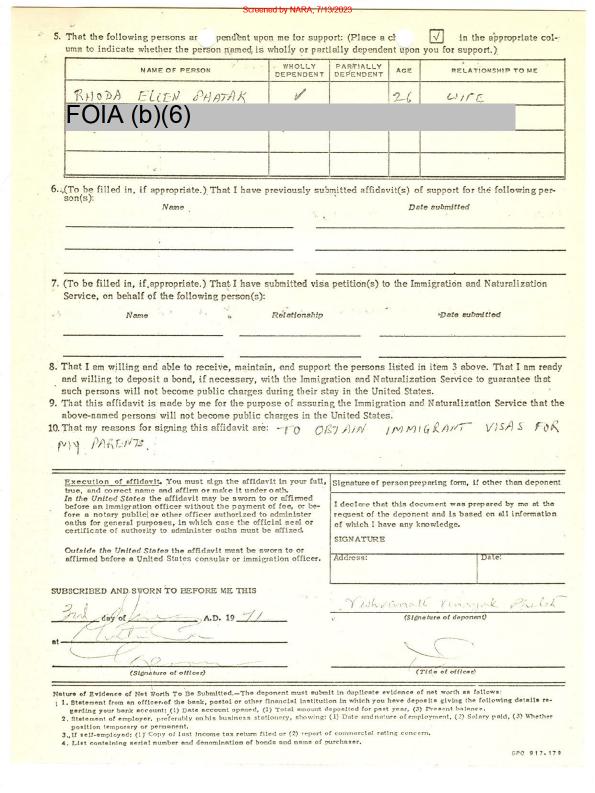 Screened by NARA, 7/13/2023
5. That the following persons ar pendent upon me for support: (Place a ch √ in the appropriate col-
umn to indicate whether the person named is wholly or partially dependent upon you for support.)
NAME OF PERSON WHOLLY DEPENDENT PARTIALLY DEPENDENT AGE RELATIONSHIP TO ME
RHODA ELLEN PHATAK ✓ 26 WIFE
FOIA (b)(6)
6. (To be filled in, if appropriate.) That I have previously submitted affidavit(s) of support for the following per-
son(s):
Name Date submitted
7. (To be filled in, if appropriate.) That I have submitted visa petition(s) to the Immigration and Naturalization
Service, on behalf of the following person(s):
Name Relationship Date submitted
8. That I am willing and able to receive, maintain, and support the persons listed in item 3 above. That I am ready
and willing to deposit a bond, if necessary, with the Immigration and Naturalization Service to guarantee that
such persons will not become public charges during their stay in the United States.
9. That this affidavit is made by me for the purpose of assuring the Immigration and Naturalization Service that the
above-named persons will not become public charges in the United States.
10. That my reasons for signing this affidavit are: TO OBTAIN IMMIGRANT VISAS FOR
MY PARENTS.
Execution of affidavit. You must sign the affidavit in your full,
true, and correct name and affirm or make it under oath.
In the United States the affidavit may be sworn to or affirmed
before an immigration officer without the payment of fee, or be-
fore a notary public or other officer authorized to administer
oaths for general purposes, in which case the official seal or
certificate of authority to administer oaths must be affixed.
Outside the United States the affidavit must be sworn to or
affirmed before a United States consular or immigration officer.
Signature of person preparing form, if other than deponent
I declare that this document was prepared by me at the
request of the deponent and is based on all information
of which I have any knowledge.
SIGNATURE
Address: Date:
SUBSCRIBED AND SWORN TO BEFORE ME THIS
3rd day of A.D. 19 71
Vishwanath Vinayak Phatak
(Signature of deponent)
at
(Signature of officer)
(Title of officer)
Nature of Evidence of Net Worth To Be Submitted.—The deponent must submit in duplicate evidence of net worth as follows:
1. Statement from an officer of the bank, postal or other financial institution in which you have deposits giving the following details re-
garding your bank account: (1) Date account opened, (1) Total amount deposited for past year, (3) Present balance.
2. Statement of employer, preferably on his business stationery, showing: (1) Date and nature of employment, (2) Salary paid, (3) Whether
position temporary or permanent.
3. If self-employed: (1) Copy of last income tax return filed or (2) report of commercial rating concern.
4. List containing serial number and denomination of bonds and name of purchaser.
GPO 917-179